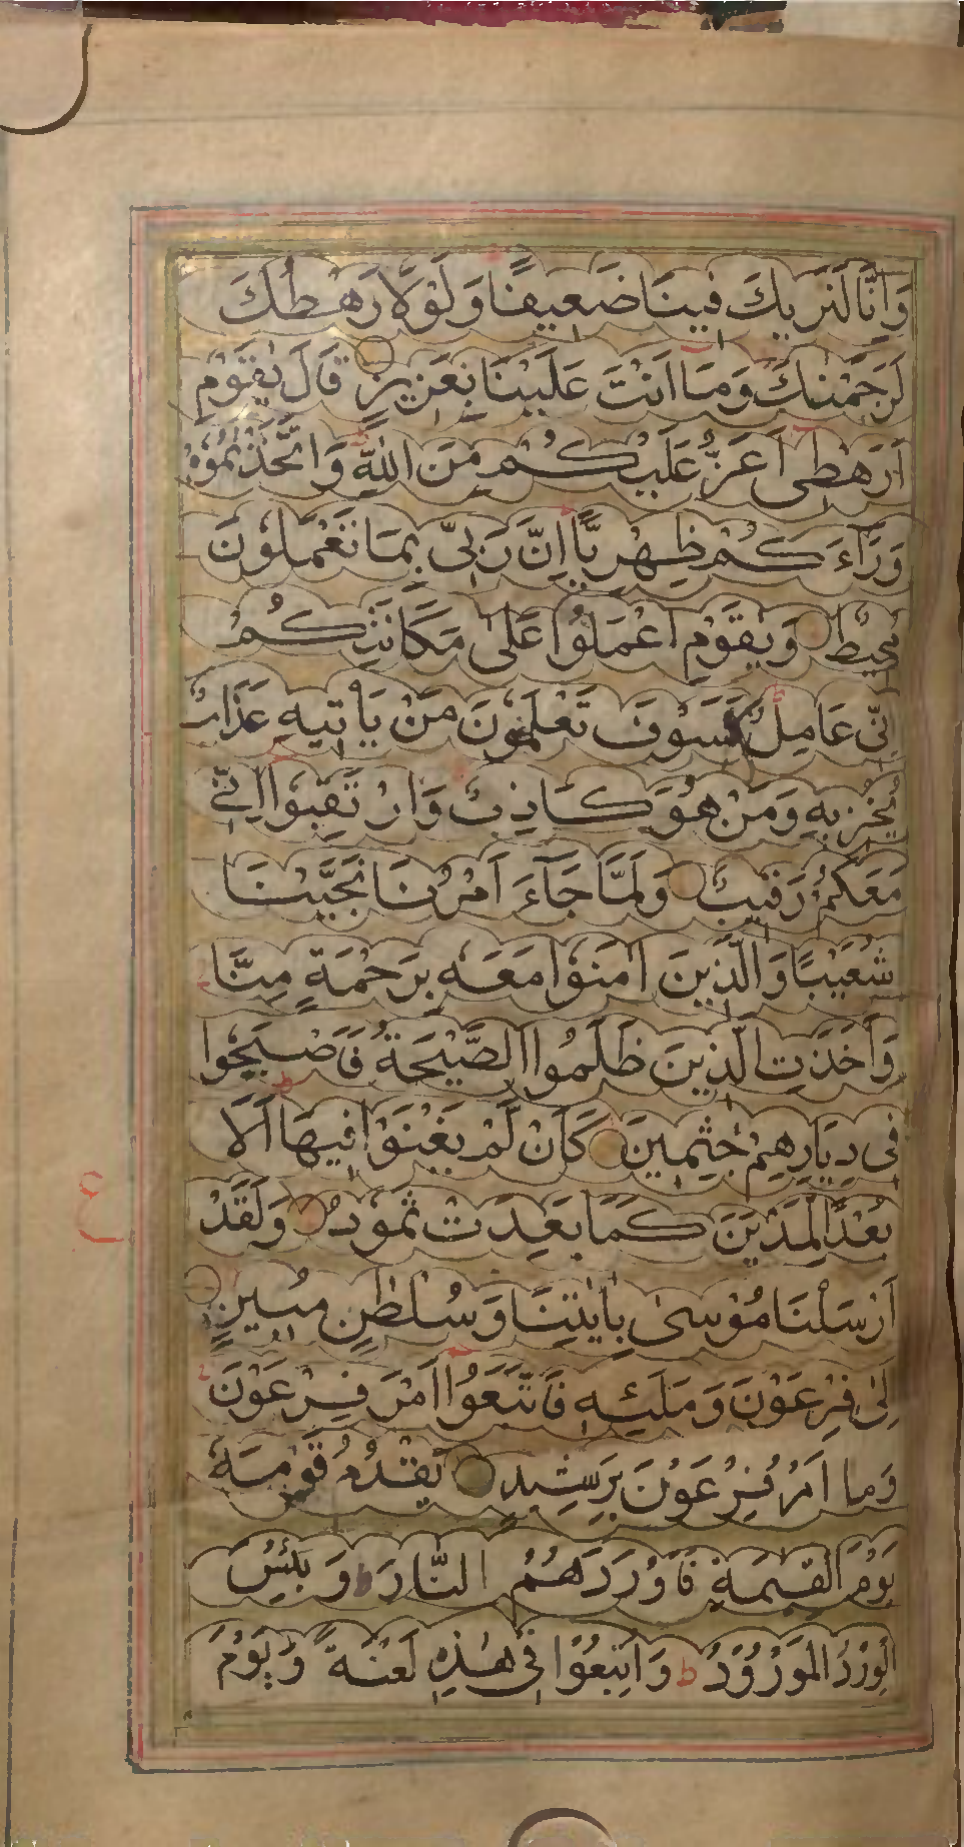 وَاِنَّا لَنَرٰيكَ فِينَا ضَعِيفًا وَلَوْلَا رَهْطُكَ
لَرَجَمْنٰكَ وَمَا اَنْتَ عَلَيْنَا بِعَزِيزٍ قَالَ يٰقَوْمِ
اَرَهْطِى اَعَزُّ عَلَيْكُمْ مِنَ اللّٰهِ وَاتَّخَذْتُمُوْهُ
وَرَاءَكُمْ ظِهْرِيًّا اِنَّ رَبِّى بِمَا تَعْمَلُوْنَ
مُحِيطٌ وَيٰقَوْمِ اعْمَلُوْا عَلٰى مَكَانَتِكُمْ
اِنِّى عَامِلٌ سَوْفَ تَعْلَمُوْنَ مَنْ يَأْتِيهِ عَذَابٌ
يُخْزِيهِ وَمَنْ هُوَ كَاذِبٌ وَارْتَقِبُوْا اِنِّى
مَعَكُمْ رَقِيبٌ وَلَمَّا جَآءَ اَمْرُنَا نَجَّيْنَا
شُعَيْبًا وَالَّذِينَ اٰمَنُوْا مَعَهٗ بِرَحْمَةٍ مِنَّا
وَاَخَذَتِ الَّذِينَ ظَلَمُوا الصَّيْحَةُ فَاَصْبَحُوا
فِى دِيَارِهِمْ جٰثِمِينَ كَاَنْ لَمْ يَغْنَوْا فِيهَا اَلَا
بُعْدًا لِمَدْيَنَ كَمَا بَعِدَتْ ثَمُوْدُ وَلَقَدْ
اَرْسَلْنَا مُوْسٰى بِاٰيٰتِنَا وَسُلْطٰنٍ مُبِينٍ
اِلٰى فِرْعَوْنَ وَمَلَئِهٖ فَاتَّبَعُوْا اَمْرَ فِرْعَوْنَ
وَمَا اَمْرُ فِرْعَوْنَ بِرَشِيدٍ يَقْدُمُ قَوْمَهٗ
يَوْمَ الْقِيٰمَةِ فَاَوْرَدَهُمُ النَّارَ ط وَبِئْسَ
الْوِرْدُ الْمَوْرُوْدُ ط وَاُتْبِعُوْا فِى هٰذِهٖ لَعْنَةً وَيَوْمَ
ع